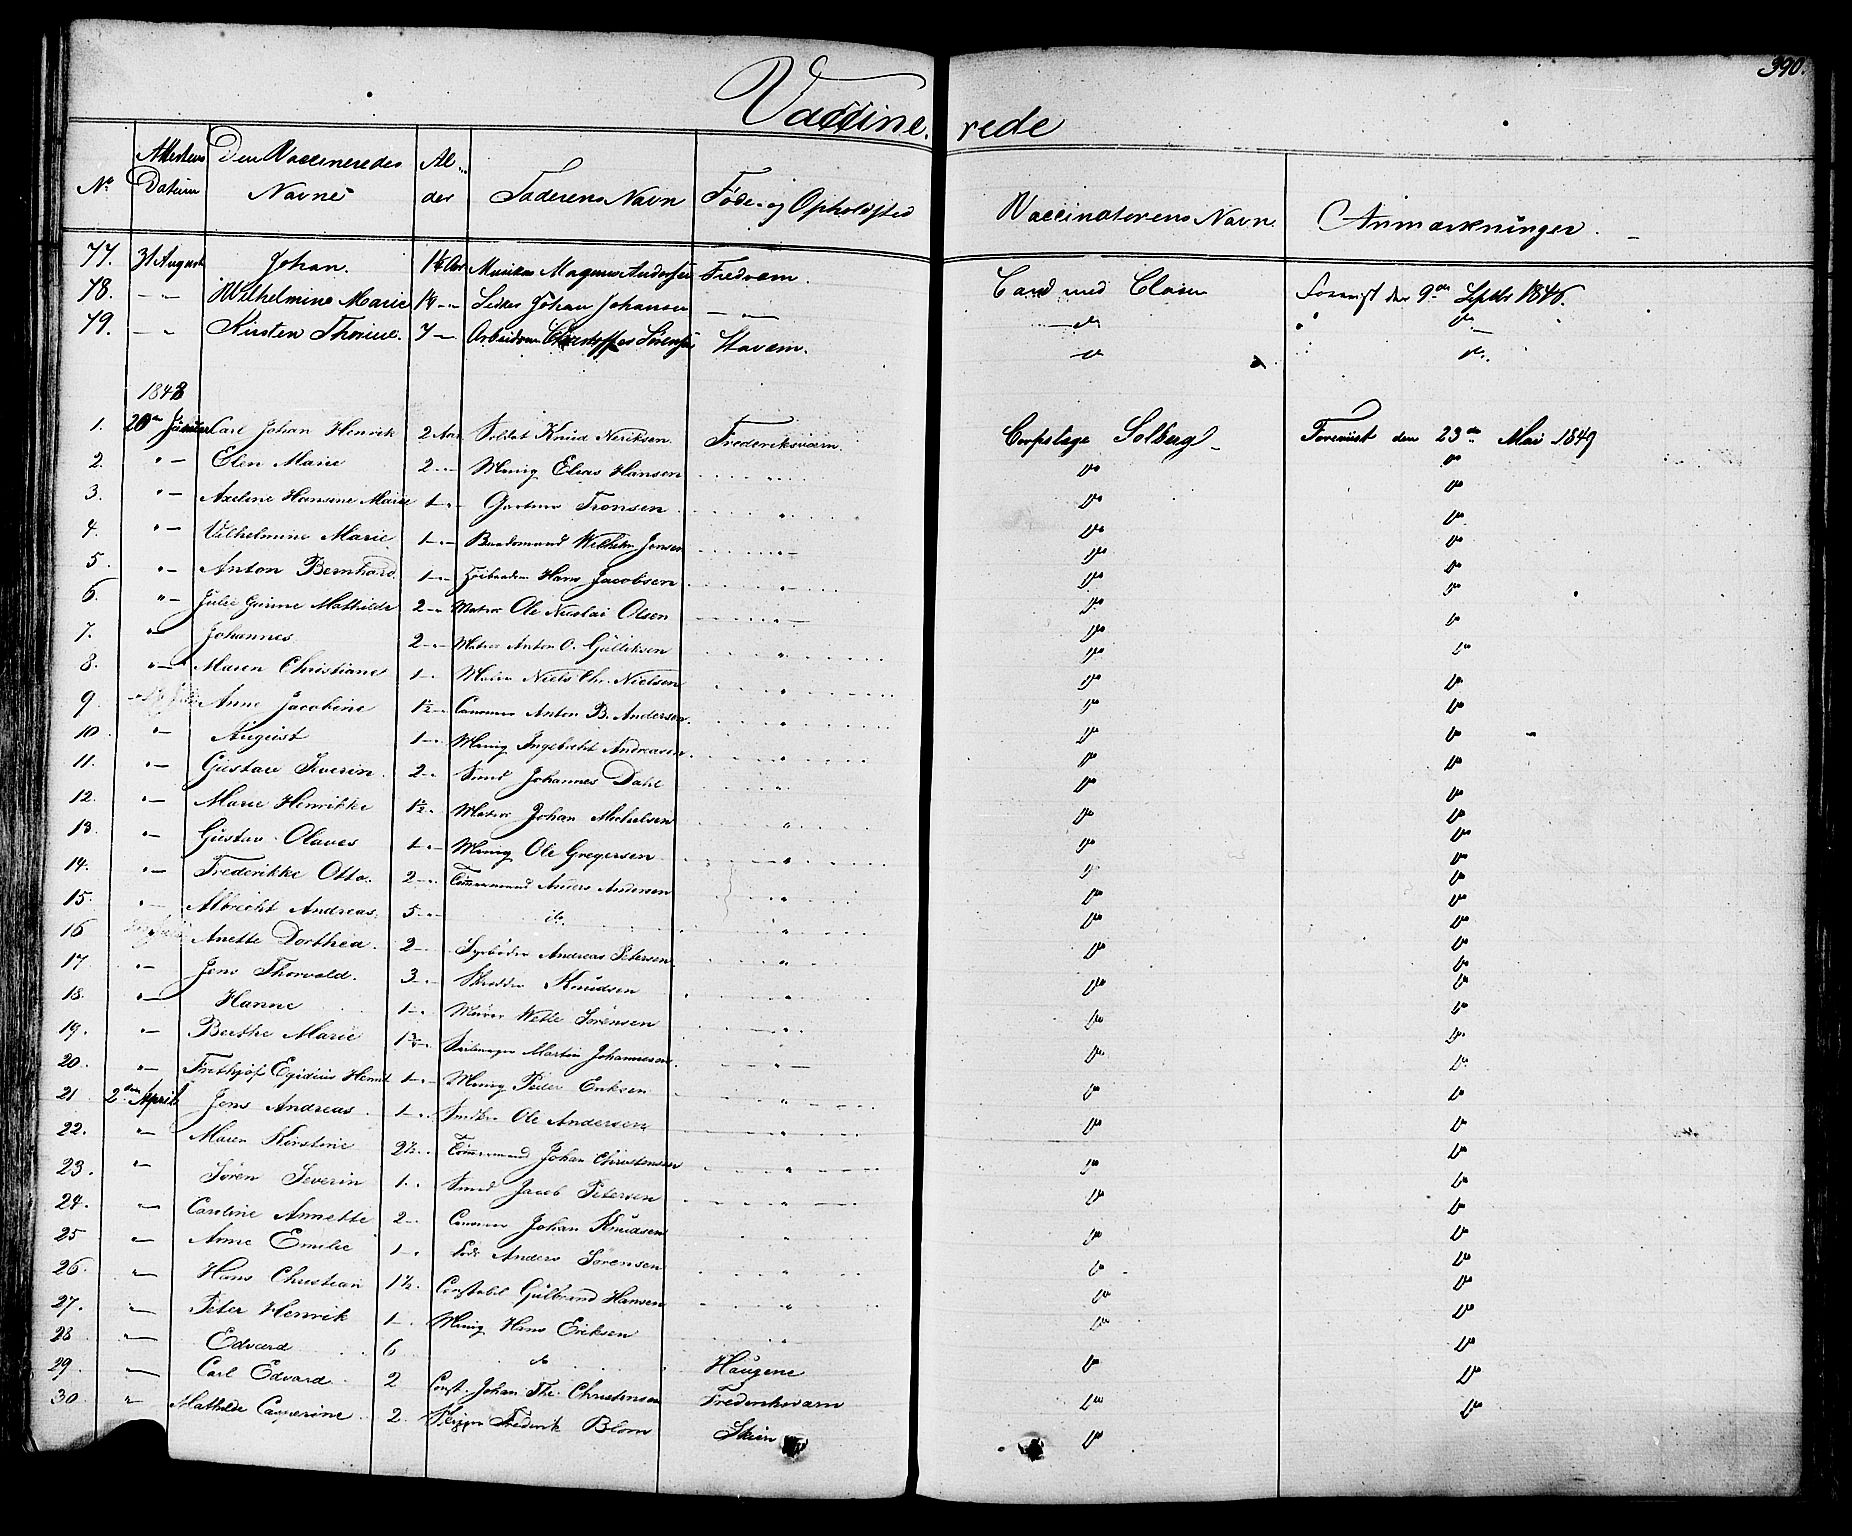 390.
Vaccine rede
No Attestens Datum Den Vaccineredes Navne Alder Faderens Navn Føde- og Opholdsted Vaccinatorens Navn Anmærkninger.
77. 31 August Johan. 1½ Aar Magnus Andersen Fredværn Cand med Clason Forevist den 9de Septbr 1846.
78. — " Wilhelmine Marie Johan Johansen — " — do do
79. — " Kirsten Thorine. 7 — Christoffer Sørensen Stavern. do do
1848
1. 20de Carl Johan Henrik 2 Aar Soldat Knud Neriksen. Frederiksværn. Corpslæge Solberg Forevist den 23de Mai 1849
2. " — Elen Marie 2 — " Menig Elias Hansen do do
3. " — Axeline Hansine Marie 1 — " Tronsen do do
4. " — Vilhelmine Marie 1 — " Baadsmand Wilhelm Jensen do do
5. " — Anton Bernhard 1 — " Hans Jacobsen do do
6. " — Julie Gurine Mathilde 2 — " Matros Ole Nicolai Olsen do do
7. " — Johannes 2 — " Matros Anton O. Gulliksen do do
8. " — Maren Christiane 1 — " Niels Chr. Nielsen do do
9. Anne Jacobine 1½ — " Canoneer Anton B. Andersen do do
10. " — August 1 — " Menig Ingebreht Andreasen do do
11. " — Gustav Severin 2 — " Smed Johannes Dahl do do
12. " — Marie Henrikke 1½ — " Matros Johan Michelsen do do
13. " — Gustav Olaves 1 — " Menig Ole Gregersen do do
14. " — Frederikke Otto. 2 — " Tømmermand Anders Andersen do do
15. " — Albrecht Andreas 5 — " do do do
16 Anette Dorthea 2 — " Andreas Petersen do do
17. " — Jens Thorvald. 3 — " Knudsen do do
18. " — Hanne 1 — " Wette Sørensen do do
19. " — Berthe Marie 1¾ — " Seilmager Martin Johannesen do do
20. " — Frithjof Egidius Henrik 1 — " Menig Peder Eriksen do do
21 2den April Jens Andreas 1 — " Ole Andersen do do
22. " — Maren Kirstine 2½ " Tømmermand Johan Christensen do do
23. " — Søren Severin 1 — " Smed Jacob Petersen do do
24. " — Caroline Annette 2 — " Canoneer Johan Knudsen do do
25 " — Anne Emilie 1 — " Lods Anders Sørensen do do
26. " — Hans Christian 1½ Constabel Gulbrand Hansen do do
27. " — Peter Henrik 1 — " Menig Hans Eriksen do do
28 " — Edvard 6 do Haugene do do
29. " — Carl Edvard 2 Const. Johan Th. Christensen Frederiksværn do do
30. " — Mathilde 2. Frederik Blom Skien do do